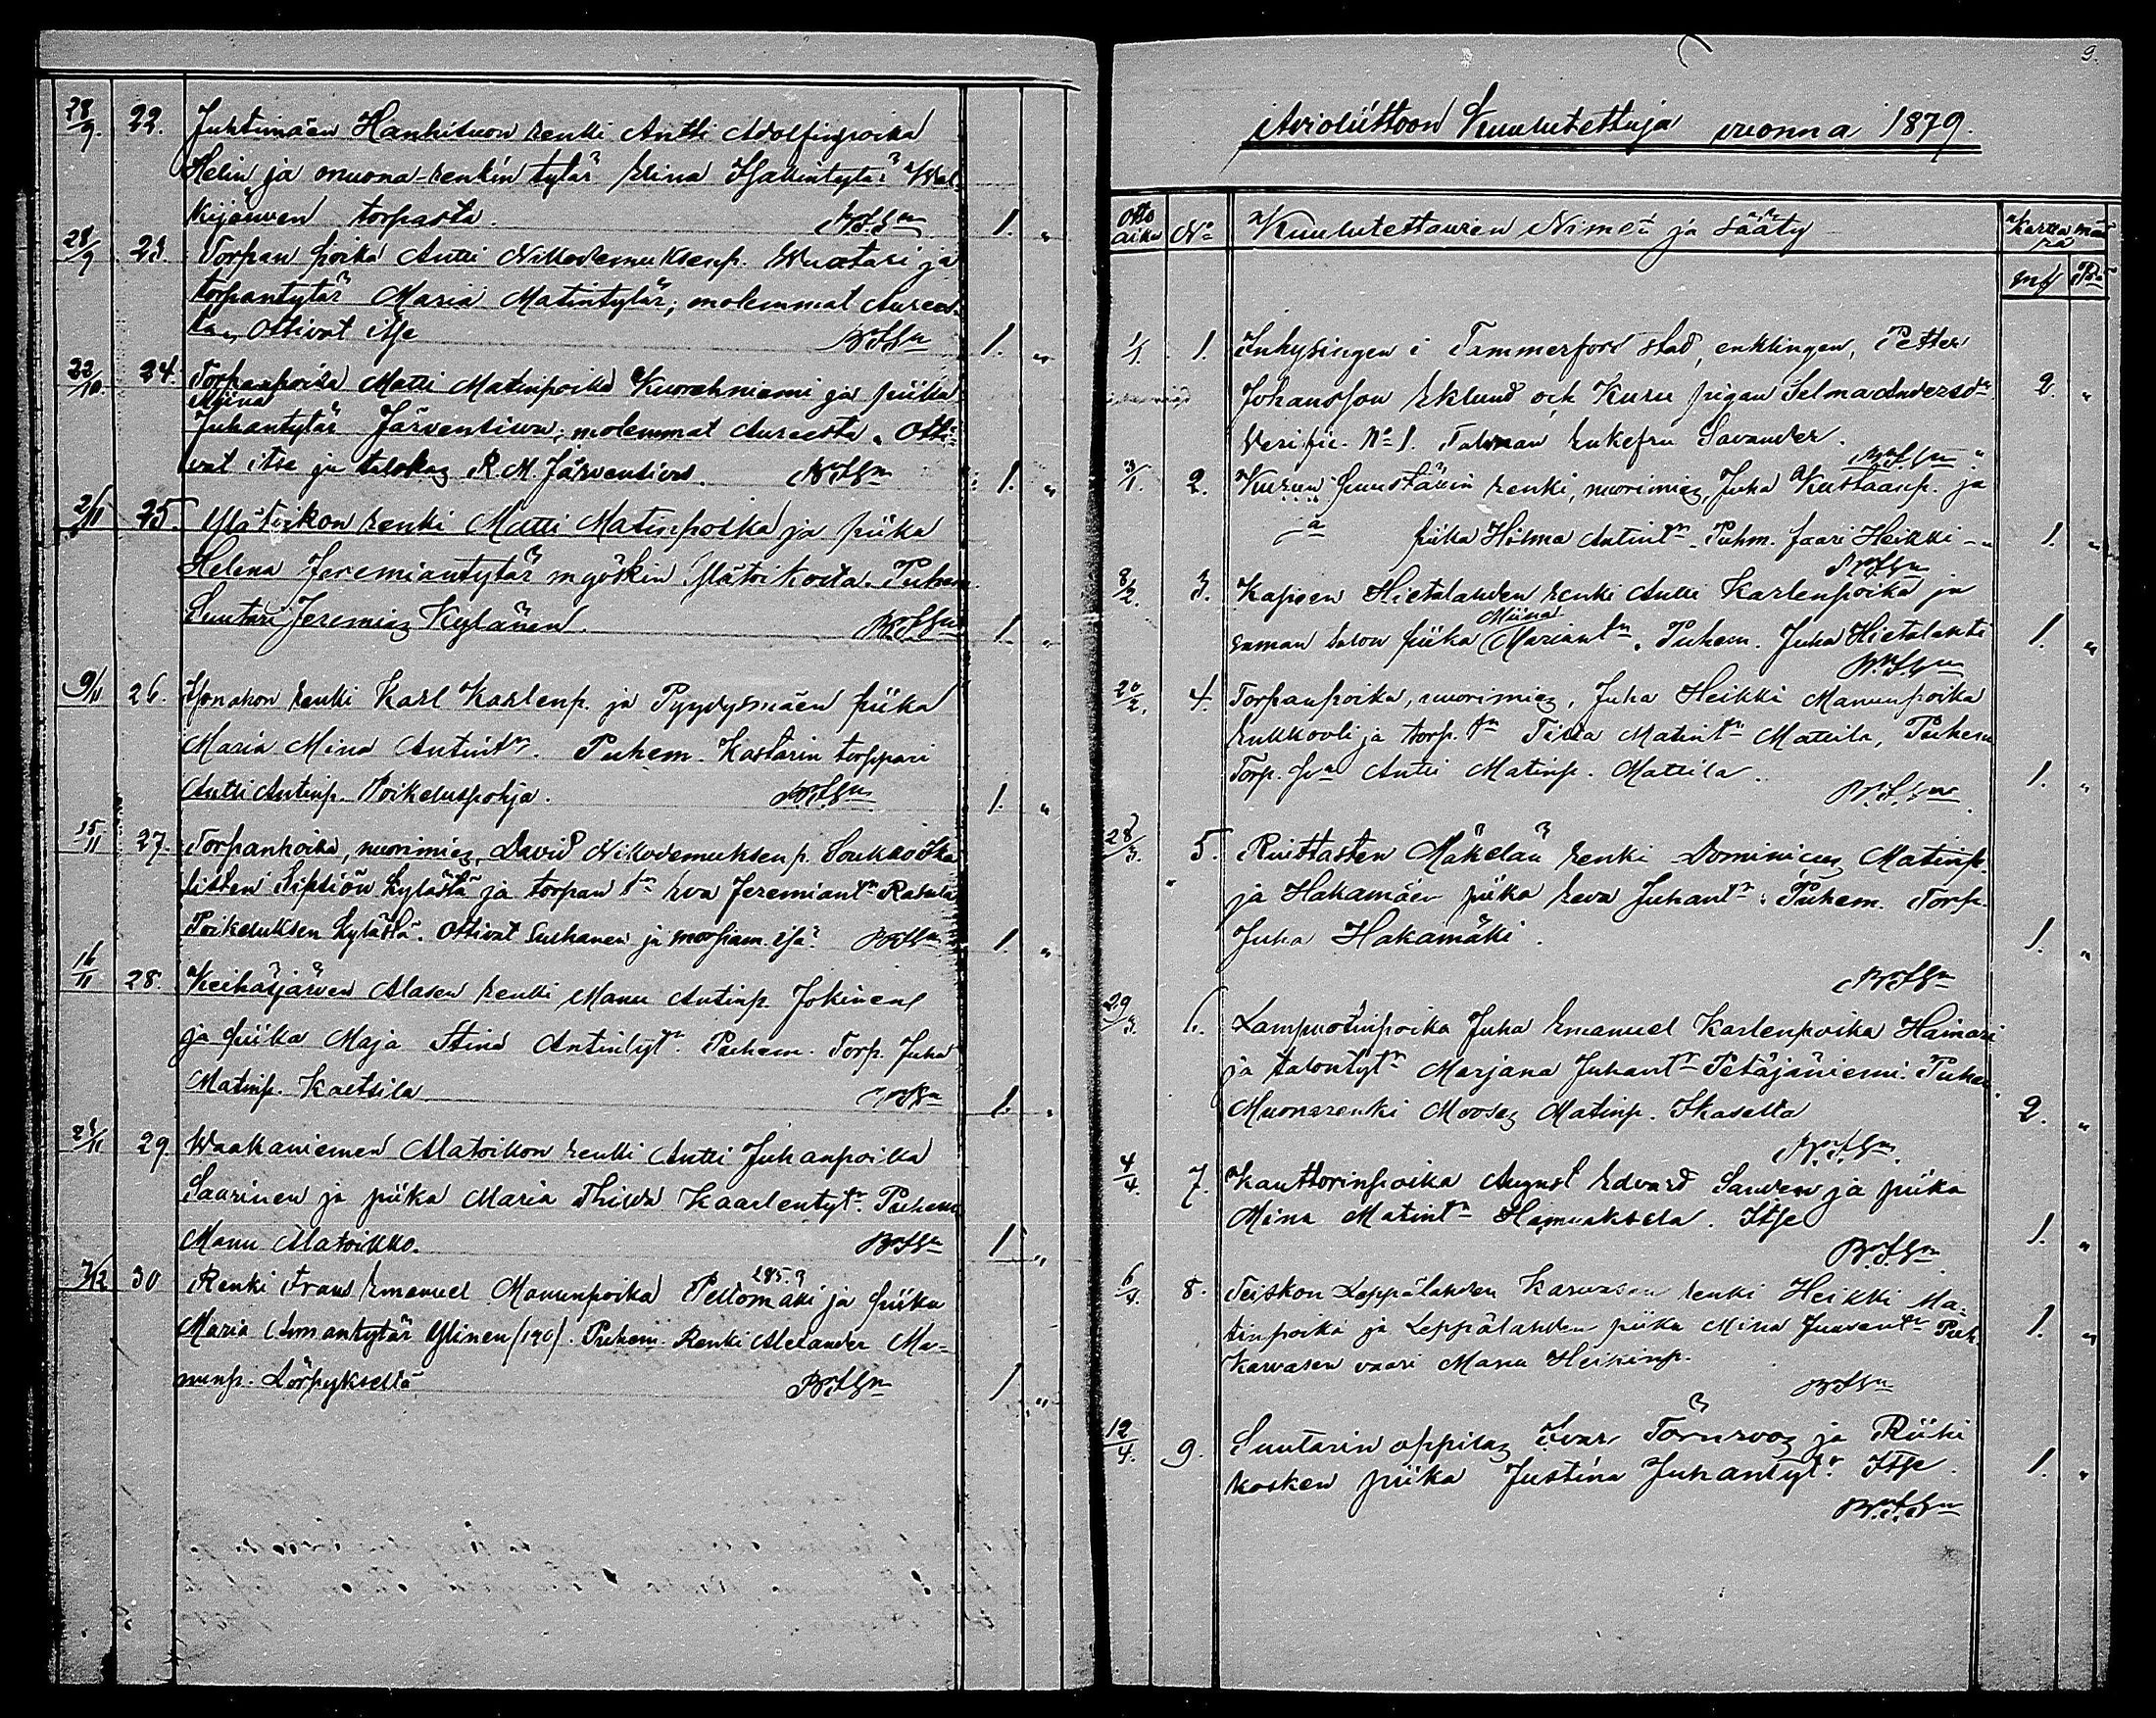 28/9. 22. Juhtimäen Hankisuon renki Antti Adolfinpoika
Helin ja muona-renkin tytär Elina Isakintytär
kijärven torpasta. 1. "
28/9 23. Torpan poika Antti Nikodemuksenp. ja
torpantytär Maria Matintytär, molemmat Aurees-
ta, Ottivat itse 1. "
22/10. 24. Torpanpoika Matti Matinpoika Kuorehniemi ja piika
Miina
Juhantytär Järvensivu, molemmat Aureesta. Otti-
vat itse ja R. M. Järvensivu. 1. "
2/11 25. Ylätoikon renki Matti Matinpoika ja piika
Helena Jeremiantytär myöskin Ylätoikosta. Puhem.
Suutari Jeremias Kylänen. 1. "
9/11 26. renki Karl Karlenp. ja Pyydysmäen piika
Maria Mina Antint:r. Puhem. Kastarin torppari
Antti Antinp. Poikeluspohja. 1. "
15/11 27. Torpanpoika, nuorimies, David Nikodemuksenp.
kylästä ja torpan t:r Eva Jeremiant:r
Poikeluksen kylästä. Ottivat Sulhanen ja isä. 1. "
16/11 28. Keihäsjärven Alasen renki Manu Antinp. Jokinen,
ja piika Maja Stina Antintyt:r. Puhem. Torp. Juha
Matinp. Kaltsila 1. "
23/11 29 Waakaniemen Alatoikon renki Antti Juhanpoika
Saarinen ja piika Maria Kaarlentyt:r. Puhem.
Manu Alatoikko. 1 "
7/12 30 Renki Frans Emanuel Manunpoika Peltomäki ja piika
Maria Amantytär Ylinen (190). Puhem. Renki Alexander Ma-
nunp. Lörpykseltä 1 "
9.
Avioliittoon Kuulutettuja vuonna 1879.
Otto aika No Kuulutettavien Nimet ja sääty Karttamäärä
mk Pä
1/1 1. Inhysingen i Tammerfors stad, enklingen, Petter
Johansson Eklund och Kuru pigan Selma Andersd:r 2. "
Verific. No 1. Talman Enkefru Savander.
3/1. 2. Kurun renki, nuorimies, Juha Kustaanp. ja
piika Hilma Antint:r. Puhm. faari Heikki 1. "
8/2. 3. Kapeen Hietalahden renki Antti Karlenpoika ja
Miina
saman talon piika Mariant:r. Puhem. Juha Hietalahti 1. "
20/2. 4. Torpanpoika, nuorimies, Juha Heikki Manunpoika
ja torp. t:r Matint:r Mattila, Puhem
Torp. Antti Matinp. Mattila. 1. "
28/3. 5. Riuttasten Mäkelän renki Dominicus Matinp.
ja Hakamäen piika Eeva Juhant:r. Puhem. Torp.
Juha Hakamäki. 1. "
29/3. 6. Lampuotinpoika Juha Emanuel Karlenpoika Hainari
ja talontyt:r Marjana Juhant:r Petäjäniemi. Puhem
Muonarenki Mooses Matinp. Ikaselta 2. "
4/4. 7. Kanttorinpoika August Edvard Sanden ja piika
Mina Matint:r. Itse 1. "
6/4. 8. Teiskon Leppälahden Karwasen renki Heikki Ma-
tinpoika ja Leppälahden piika Mina Juusent:r Puh. 1. "
Karwasen vaari Manu Heikinp.
12/4. 9. Suutarin oppilas Ivar Törnroos ja Riihi
kosken piika Justina Juhantyt:r. Itse. 1. "